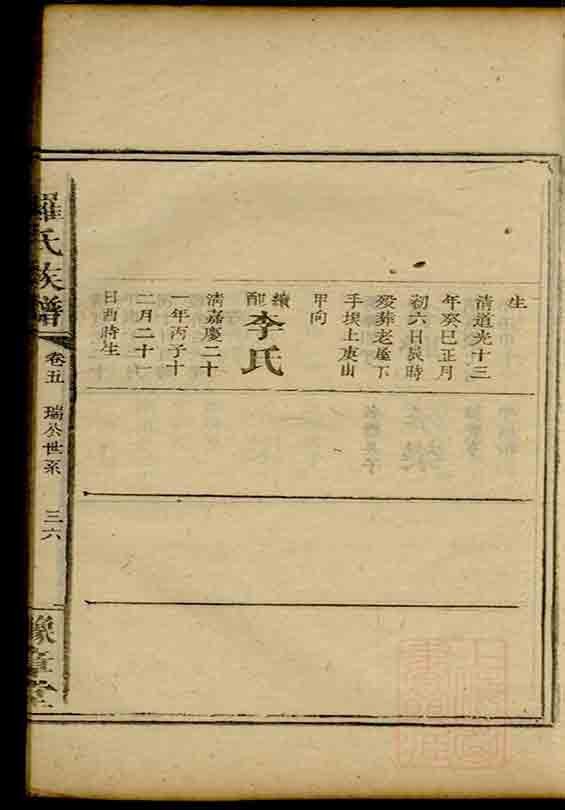 生
清道光十三
年癸巳正月
初六日辰時
歿葬老屋下
手塅上庚山
甲向
續配李氏
清嘉慶二十
一年丙子十
二月二十一
日酉時生
羅氏族譜
卷五
瑞公世系
三六
豫章堂